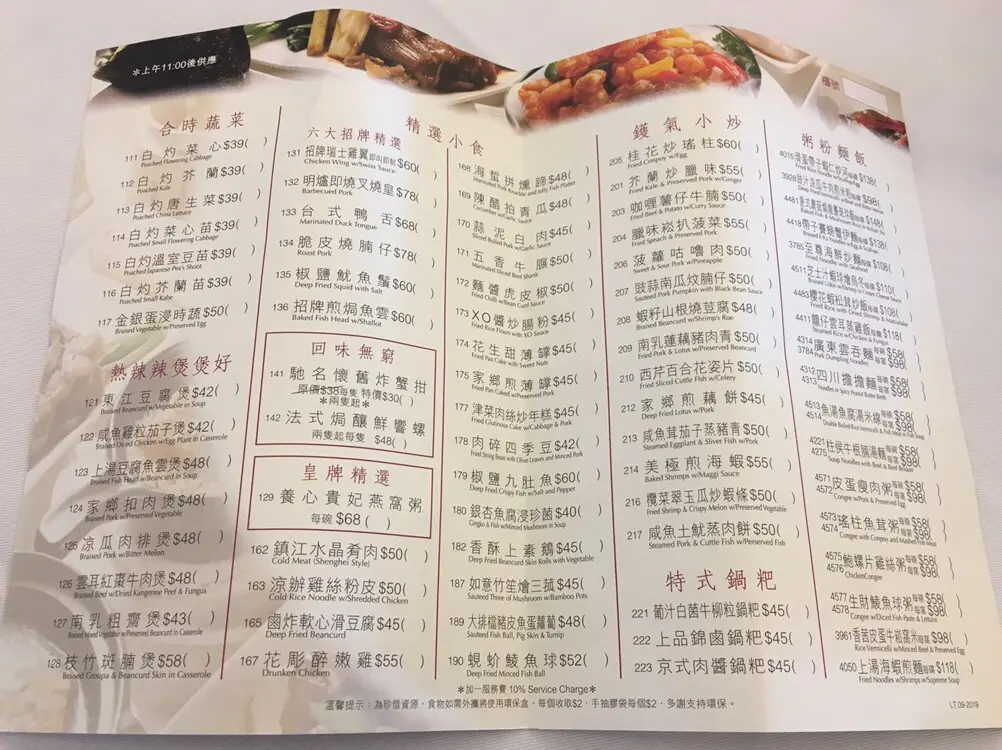 *上午11:00後供應
檯號
合時蔬菜
111 白灼菜心 $39( )
Poached Flowering Cabbage
112 白灼芥蘭 $39( )
Poached Kale
113 白灼唐生菜 $39( )
Poached China Lettuce
114 白灼菜心苗 $39( )
Poached Small Flowering Cabbage
115 白灼溫室豆苗 $39( )
Poached Japanese Pea's Shoot
116 白灼芥蘭苗 $39( )
Poached Small Kabe
117 金銀蛋浸時蔬 $50( )
Braised Vegetable w/Preserved Egg
熱辣辣煲煲好
121 東江豆腐煲 $42( )
Braised Beancurd w/Vegetable in Soup
122 咸魚雞粒茄子煲 $42( )
Braised Diced Chicken w/Egg Plant in Casserole
123 上湯豆腐魚雲煲 $48( )
Braised Fish Head w/Beancurd in Soup
124 家鄉扣肉煲 $48( )
Braised Pork w/Preserved Vegetable
125 凉瓜肉排煲 $48( )
Braised Pork w/Bitter Melon
126 雲耳紅棗牛肉煲 $48( )
Braised Beef w/Dried Kangerine Peet & Fungus
127 南乳粗齋煲 $43( )
Braised Mixed Vegetable w/Preserved Beancurd in Casserole
128 枝竹斑腩煲 $58( )
Braised Groupa & Beancurd Skin in Casserole
精選小食
六大招牌精選
131 招牌瑞士雞翼 即叫即制 $60( )
Chicken Wing w/Swiss Sauce
132 明爐即燒叉燒皇 $78( )
Barbecued Pork
133 台式鴨舌 $68( )
Marinated Duck Tongue
134 脆皮燒腩仔 $78( )
Roast Pork
135 椒鹽魷魚鬚 $60( )
Deep Fried Squid with Salt
136 招牌煎焗魚雲 $60( )
Baked Fish Head w/Shallot
回味無窮
141 馳名懷舊炸蟹拑
原價$38每隻 特價$30( )
*兩隻起*
142 法式焗釀鮮響螺
兩隻起每隻 $48( )
皇牌精選
129 養心貴妃燕窩粥
每碗 $68 ( )
162 鎮江水晶肴肉 $50( )
Cold Meat (Shenghei Style)
163 涼辦雞絲粉皮 $50( )
Cold Rice Noodle w/Shredded Chicken
165 鹵炸軟心滑豆腐 $45( )
Deep Fried Beancurd
167 花彫醉嫩雞 $55( )
Drunken Chicken
168 海蜇拼燻蹄 $48( )
Marinated Pork Knuckle and Jelly Fish Platter
169 陳醋拍青瓜 $48( )
Cucumber w/Garlic Sauce
170 蒜泥白肉 $45( )
Sliced Boiled Pork w/Garlic Sauce
171 五香牛𦟌 $50( )
Marinated Sliced Beef Shank
172 麵醬虎皮椒 $50( )
Fried Chilli w/Bean Curd Sauce
173 XO醬炒腸粉 $45( )
Fried Rice Flours with XO Sauce
174 花生甜薄罉 $45( )
Fried Pan Cake with Sweet Nuts
175 家鄉煎薄罉 $45( )
Fried Pan Caked w/Preserved Pork
177 津菜肉絲炒年糕 $45( )
Fried Glutinous Cake w/Cabbage & Pork
178 肉碎四季豆 $42( )
Fried String Bean with Olive Leaves and Minced Pork
179 椒鹽九肚魚 $60( )
Deep Fried Crispy Fish w/Salt and Pepper
180 銀杏魚腐浸珍菌 $40( )
Gingko & Fish w/Minced Mushroom in Soup
182 香酥上素鵝 $45( )
Deep Fried Beancurd Skin Rolls with Vegetable
187 如意竹笙燴三菰 $45( )
Sauteed Three of Mushroom w/Bamboo Pots
189 大排檔豬皮魚蛋蘿蔔 $48( )
Sauteed Fish Ball, Pig Skin & Turnip
190 蜆蚧鯪魚球 $52( )
Deep Fried Minced Fish Ball
鑊氣小炒
205 桂花炒瑤柱 $60( )
Fried Conpoy w/Egg
201 芥蘭炒臘味 $55( )
Fried Kale & Preserved Pork w/Ginger
203 咖喱薯仔牛腩 $50( )
Fried Beef & Potato w/Curry Sauce
204 臘味崧扒菠菜 $55( )
Fried Spinach & Preserved Pork
206 菠蘿咕嚕肉 $50( )
Sweet & Sour Pork w/Pineapple
207 豉蒜南瓜炆腩仔 $50( )
Sauteed Pork Pumpkin with Black Bean Sauce
208 蝦籽山根燒荳腐 $48( )
Braised Beancurd w/Shrimp's Roe
209 南乳蓮藕豬肉青 $50( )
Fried Pork & Lotus w/Preserved Beancurd
210 西芹百合花姿片 $50( )
Fried Sliced Cuttle Fish w/Celery
212 家鄉煎藕餅 $45( )
Deep Fried Lotus w/Pork
213 咸魚茸茄子蒸豬青 $50( )
Steamed Eggplant & Sliver Fish w/Pork
214 美極煎海蝦 $55( )
Baked Shrimps w/Maggi Sauce
216 欖菜翠玉瓜炒蝦條 $50( )
Fried Shrimp & Crispy Melon w/Preserved Vegetable
217 咸魚土魷蒸肉餅 $50( )
Steamed Pork & Cuttle Fish w/Perserved Fish
特式鍋粑
221 葡汁白菌牛柳粒鍋粑 $45( )
222 上品錦鹵鍋粑 $45( )
223 京式肉醬鍋粑 $45( )
粥粉麵飯
4016 滑蛋帶子蝦仁炒河 每碟 $138( )
3928 豉汁涼瓜牛肉煎米粉 每碟 $98( )
4481 $148( )
4418 帶子賽螃蟹伊麵 每碟 $138( )
3785 至尊海鮮炒麵 每碟 $108( )
Fried Noodle with Seafood
4511 芝士汁蝦球燴烏冬 每碟 $110( )
Braised Udon w/Shrimp in Cream Cheese Sauce
4483 櫻花蝦崧茸炒飯 每碟 $108( )
Fried Rice with Dried Shrimp & Matsutake
4411 龍仔雲耳蒸雞飯 每碟 $118( )
Steamed Rice w/Chicken & Fungus
4314 廣東雲吞麵 每碗 $58(
3784 每窩 $98( )
Pork Dumpling Noodles
4312 四川擔擔麵 每碗 $58(
4313 每窩 $98( )
Noodles in Spicy Peanut Butter Broth
4513 魚湯魚腐湯米線 每碗 $58(
4514 每窩 $98( )
4221 柱侯牛根腩湯麵 每碗 $58(
4275 每窩 $98( )
Soup Noodles with Beef & Beef Brisket
4571 皮蛋瘦肉粥 每碗 $58(
4572 每窩 $98( )
Congee w/Pork & Preserved Egg
4573 瑤柱魚茸粥 每碗 $58(
4574 每窩 $98( )
Congee with Conpoy and Mashed Fish Meat
4575 鮑螺片雞絲粥 每碗 $58(
4576 每窩 $98( )
Chicken Congee
4577 生財鯪魚球粥 每碗 $58(
4578 每窩 $98( )
Congee w/Diced Fish Paste & Lettuce
3961 香茜皮蛋牛崧窩米 每窩 $98( )
Rice Vermicelli w/Minced Beef & Preserved Egg
4050 上湯海蝦煎麵 每碟 $118( )
Fried Noodles w/Shrimps w/Supreme Soup
*加一服務費 10% Service Charge*
溫馨提示：為珍惜資源，食物如需外攜將使用環保盒，每個收取$2，手抽膠袋每個$2，多謝支持環保。
LT.09-2019